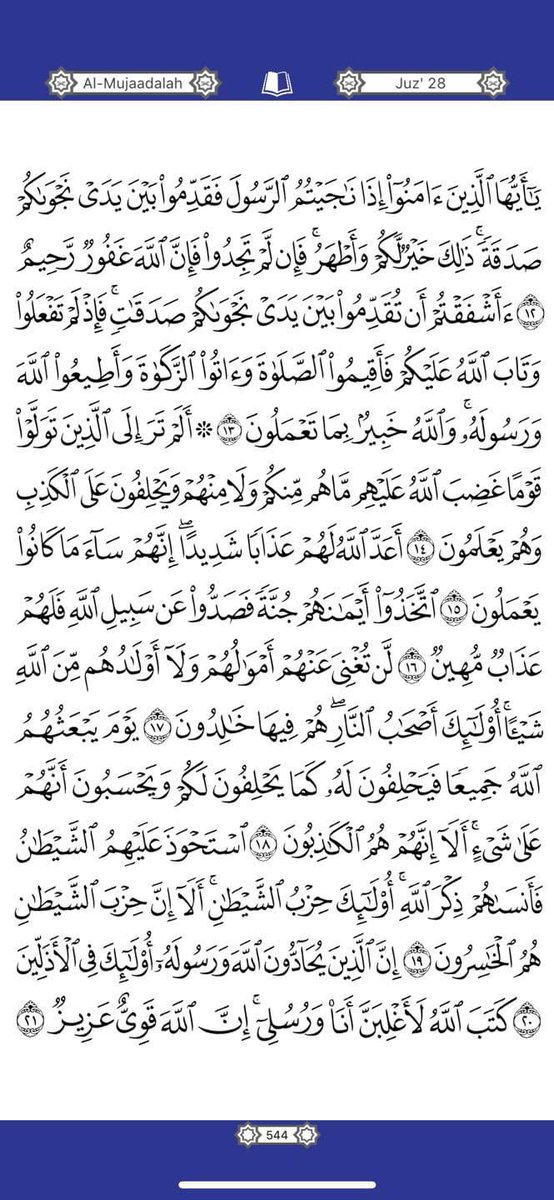 Al-Mujaadalah
Juz' 28
يَٰٓأَيُّهَا ٱلَّذِينَ ءَامَنُوٓا۟ إِذَا نَٰجَيْتُمُ ٱلرَّسُولَ فَقَدِّمُوا۟ بَيْنَ يَدَىْ نَجْوَىٰكُمْ
صَدَقَةً ۚ ذَٰلِكَ خَيْرٌ لَّكُمْ وَأَطْهَرُ ۚ فَإِن لَّمْ تَجِدُوا۟ فَإِنَّ ٱللَّهَ غَفُورٌ رَّحِيمٌ
١٢ ءَأَشْفَقْتُمْ أَن تُقَدِّمُوا۟ بَيْنَ يَدَىْ نَجْوَىٰكُمْ صَدَقَٰتٍ ۚ فَإِذْ لَمْ تَفْعَلُوا۟
وَتَابَ ٱللَّهُ عَلَيْكُمْ فَأَقِيمُوا۟ ٱلصَّلَوٰةَ وَءَاتُوا۟ ٱلزَّكَوٰةَ وَأَطِيعُوا۟ ٱللَّهَ
وَرَسُولَهُۥ ۚ وَٱللَّهُ خَبِيرٌۢ بِمَا تَعْمَلُونَ ١٣ ۞ أَلَمْ تَرَ إِلَى ٱلَّذِينَ تَوَلَّوْا۟
قَوْمًا غَضِبَ ٱللَّهُ عَلَيْهِم مَّا هُم مِّنكُمْ وَلَا مِنْهُمْ وَيَحْلِفُونَ عَلَى ٱلْكَذِبِ
وَهُمْ يَعْلَمُونَ ١٤ أَعَدَّ ٱللَّهُ لَهُمْ عَذَابًا شَدِيدًا ۖ إِنَّهُمْ سَآءَ مَا كَانُوا۟
يَعْمَلُونَ ١٥ ٱتَّخَذُوٓا۟ أَيْمَٰنَهُمْ جُنَّةً فَصَدُّوا۟ عَن سَبِيلِ ٱللَّهِ فَلَهُمْ
عَذَابٌ مُّهِينٌ ١٦ لَّن تُغْنِىَ عَنْهُمْ أَمْوَٰلُهُمْ وَلَآ أَوْلَٰدُهُم مِّنَ ٱللَّهِ
شَيْـًٔا ۚ أُو۟لَٰٓئِكَ أَصْحَٰبُ ٱلنَّارِ ۖ هُمْ فِيهَا خَٰلِدُونَ ١٧ يَوْمَ يَبْعَثُهُمُ
ٱللَّهُ جَمِيعًا فَيَحْلِفُونَ لَهُۥ كَمَا يَحْلِفُونَ لَكُمْ وَيَحْسَبُونَ أَنَّهُمْ
عَلَىٰ شَىْءٍ ۚ أَلَآ إِنَّهُمْ هُمُ ٱلْكَٰذِبُونَ ١٨ ٱسْتَحْوَذَ عَلَيْهِمُ ٱلشَّيْطَٰنُ
فَأَنسَىٰهُمْ ذِكْرَ ٱللَّهِ ۚ أُو۟لَٰٓئِكَ حِزْبُ ٱلشَّيْطَٰنِ ۚ أَلَآ إِنَّ حِزْبَ ٱلشَّيْطَٰنِ
هُمُ ٱلْخَٰسِرُونَ ١٩ إِنَّ ٱلَّذِينَ يُحَآدُّونَ ٱللَّهَ وَرَسُولَهُۥٓ أُو۟لَٰٓئِكَ فِى ٱلْأَذَلِّينَ
٢٠ كَتَبَ ٱللَّهُ لَأَغْلِبَنَّ أَنَا۠ وَرُسُلِىٓ ۚ إِنَّ ٱللَّهَ قَوِىٌّ عَزِيزٌ ٢١
544